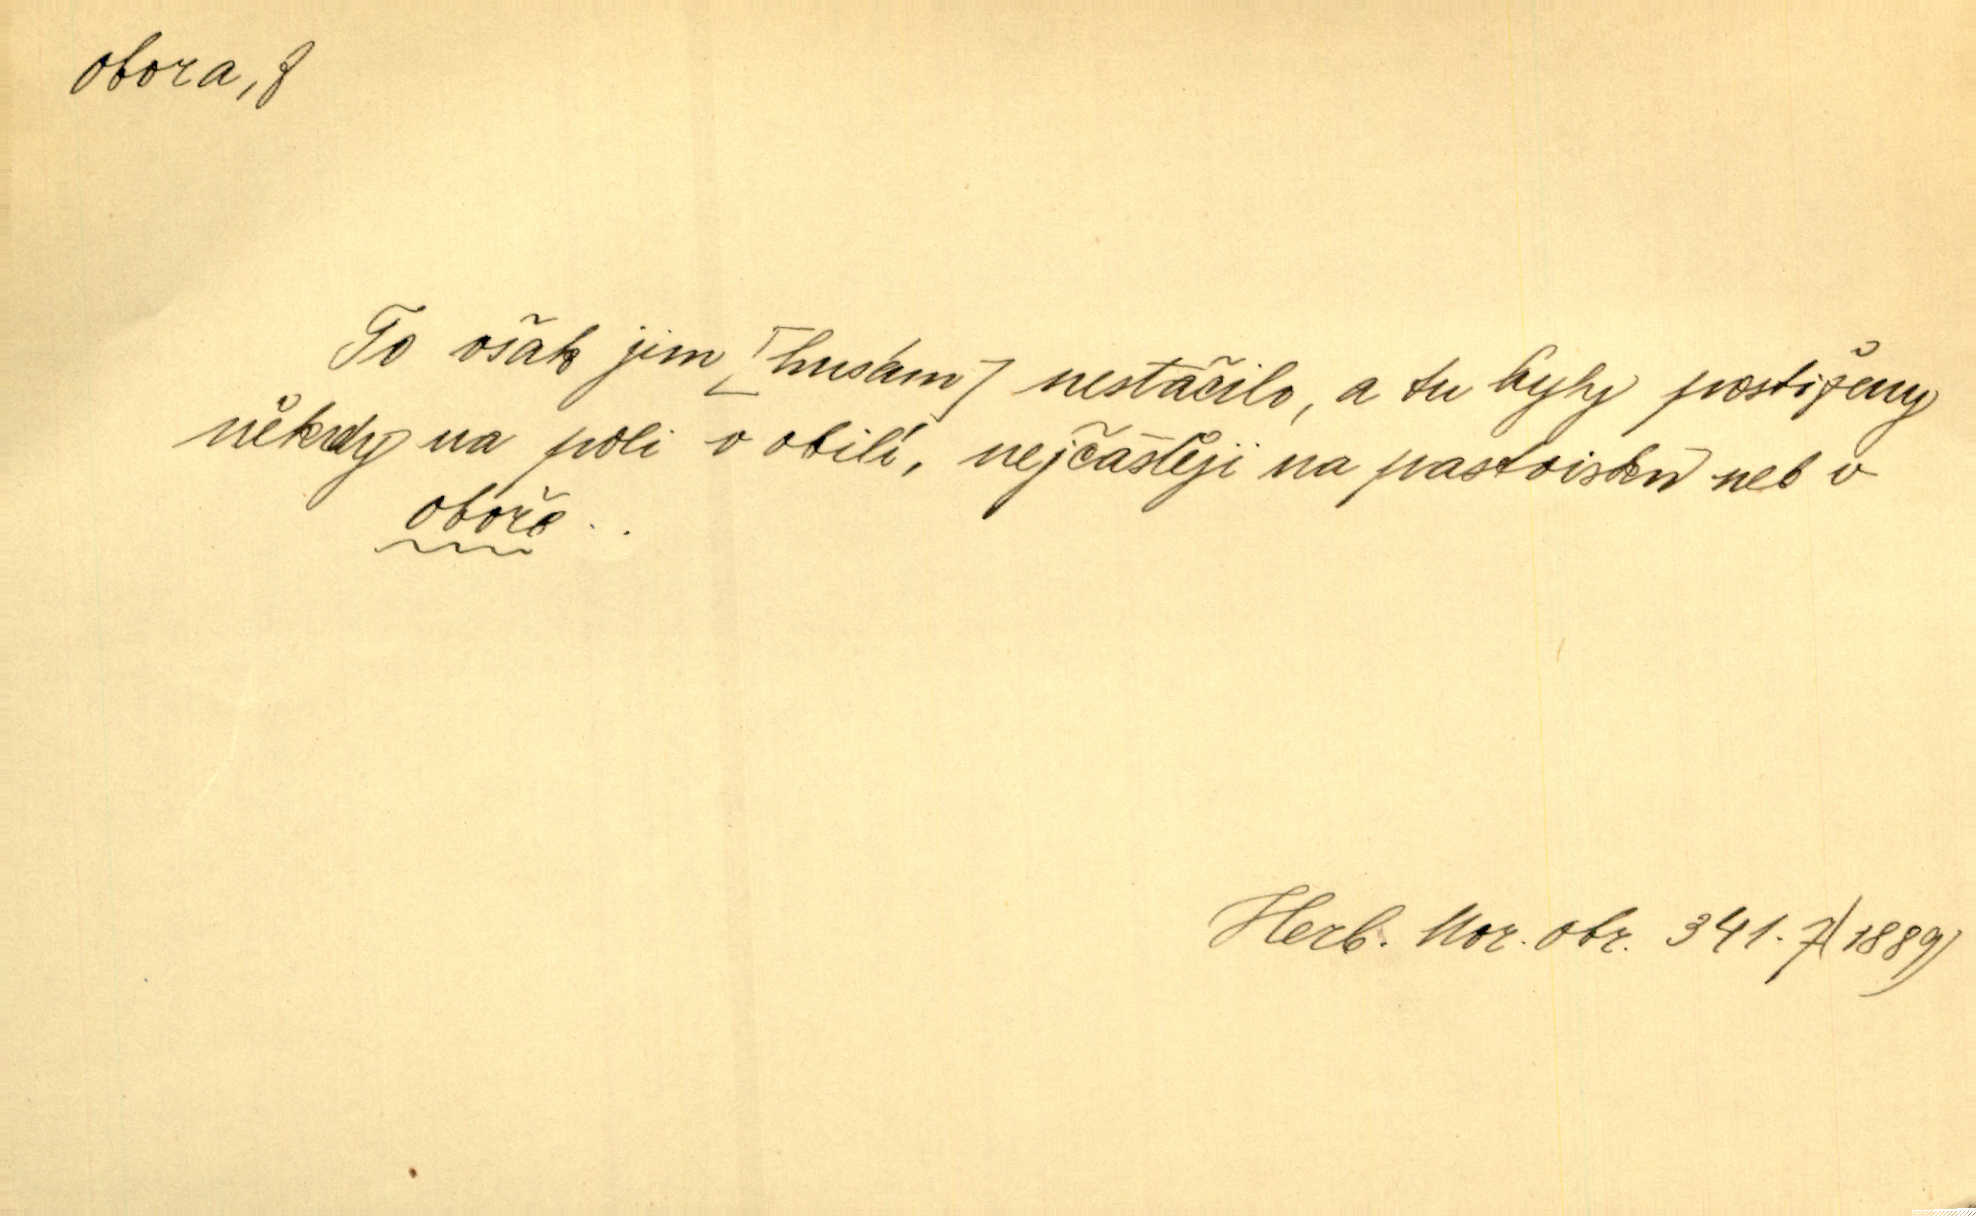 obora, f
To však jim [husám] nestačilo, a tu byly postiženy
někdy na poli v obilí, nejčastěji na pastvisku neb v
oboře..
Herb. Mor. obr. 341. 7 (1889)